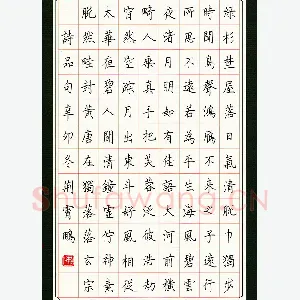 綠杉埜屋落日氣清脫巾獨步
時聞鳥聲鴻鴈不來之子遠行
所思不遠若為平生海風碧雲
夜渚月明如有佳語大河前橫
畸人乘真手把芙蓉泛彼浩劫
窅然空蹤月出東斗好風相從
太華夜碧人聞清鐘虛佇神素
脫然畦封黃唐在獨落落玄宗
詩品句辛卯冬荊霄鵬
Shufawang.CN